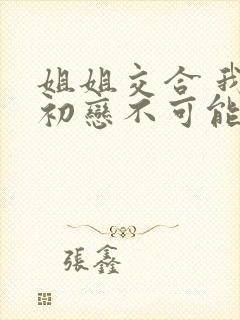 姐姐交合 我
初戀不可能
張鑫